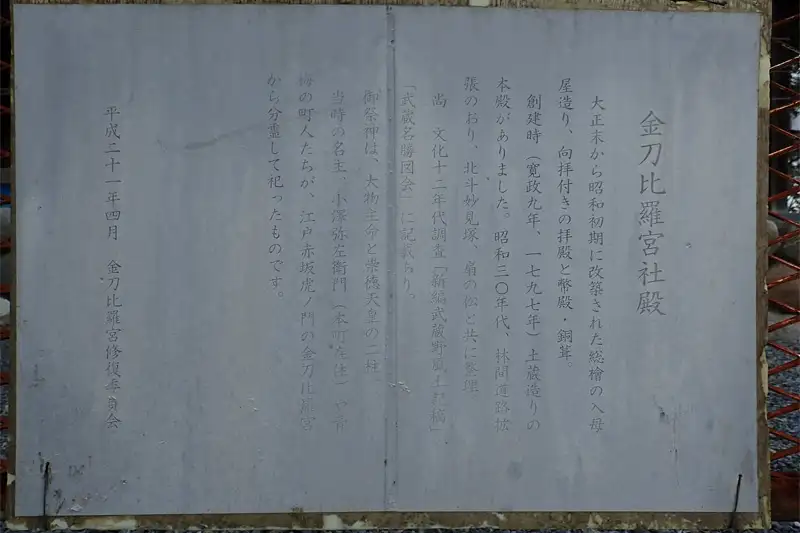 金刀比羅宮社殿
大正末から昭和初期に改築された総檜の入母
屋造り、向拝付きの拝殿と幣殿・銅葺。
創建時（寛政九年、一七九七年）土蔵造りの
本殿がありました。昭和三〇年代、林間道路拡
張のおり、北斗妙見塚、扇の松と共に整理
尚 文化十二年代調査「新編武蔵野風土記稿」、
「武蔵名勝図会」に記載あり。
御祭神は、大物主命と崇徳天皇の二柱。
当時の名主、小澤弥左衛門（本町在住）や青
梅の町人たちが、江戸赤坂虎ノ門の金刀比羅宮
から分霊して祀ったものです。
平成二十一年四月 金刀比羅宮修復委員会